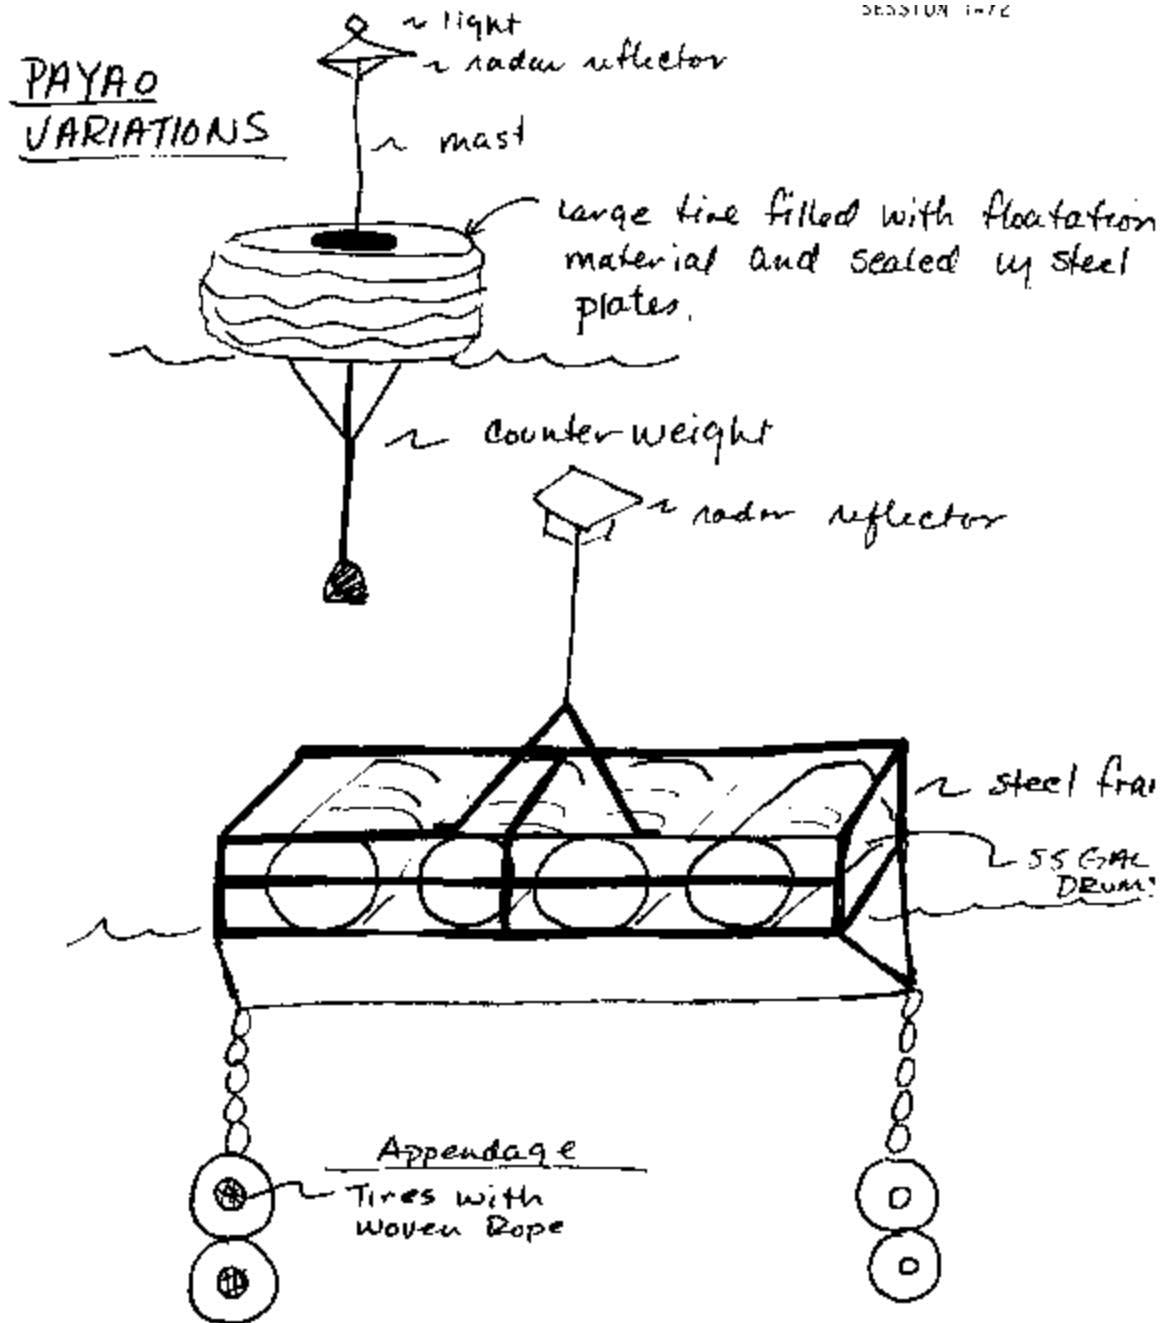 SESSION 1-72
~ light
~ radar reflector
PAYAO
VARIATIONS
~ mast
large tire filled with floatation
material and sealed w/ steel
plates.
~ counter weight
~ radar reflector
~ steel fra
55 GAL
DRUM
Appendage
Tires with
Woven Rope